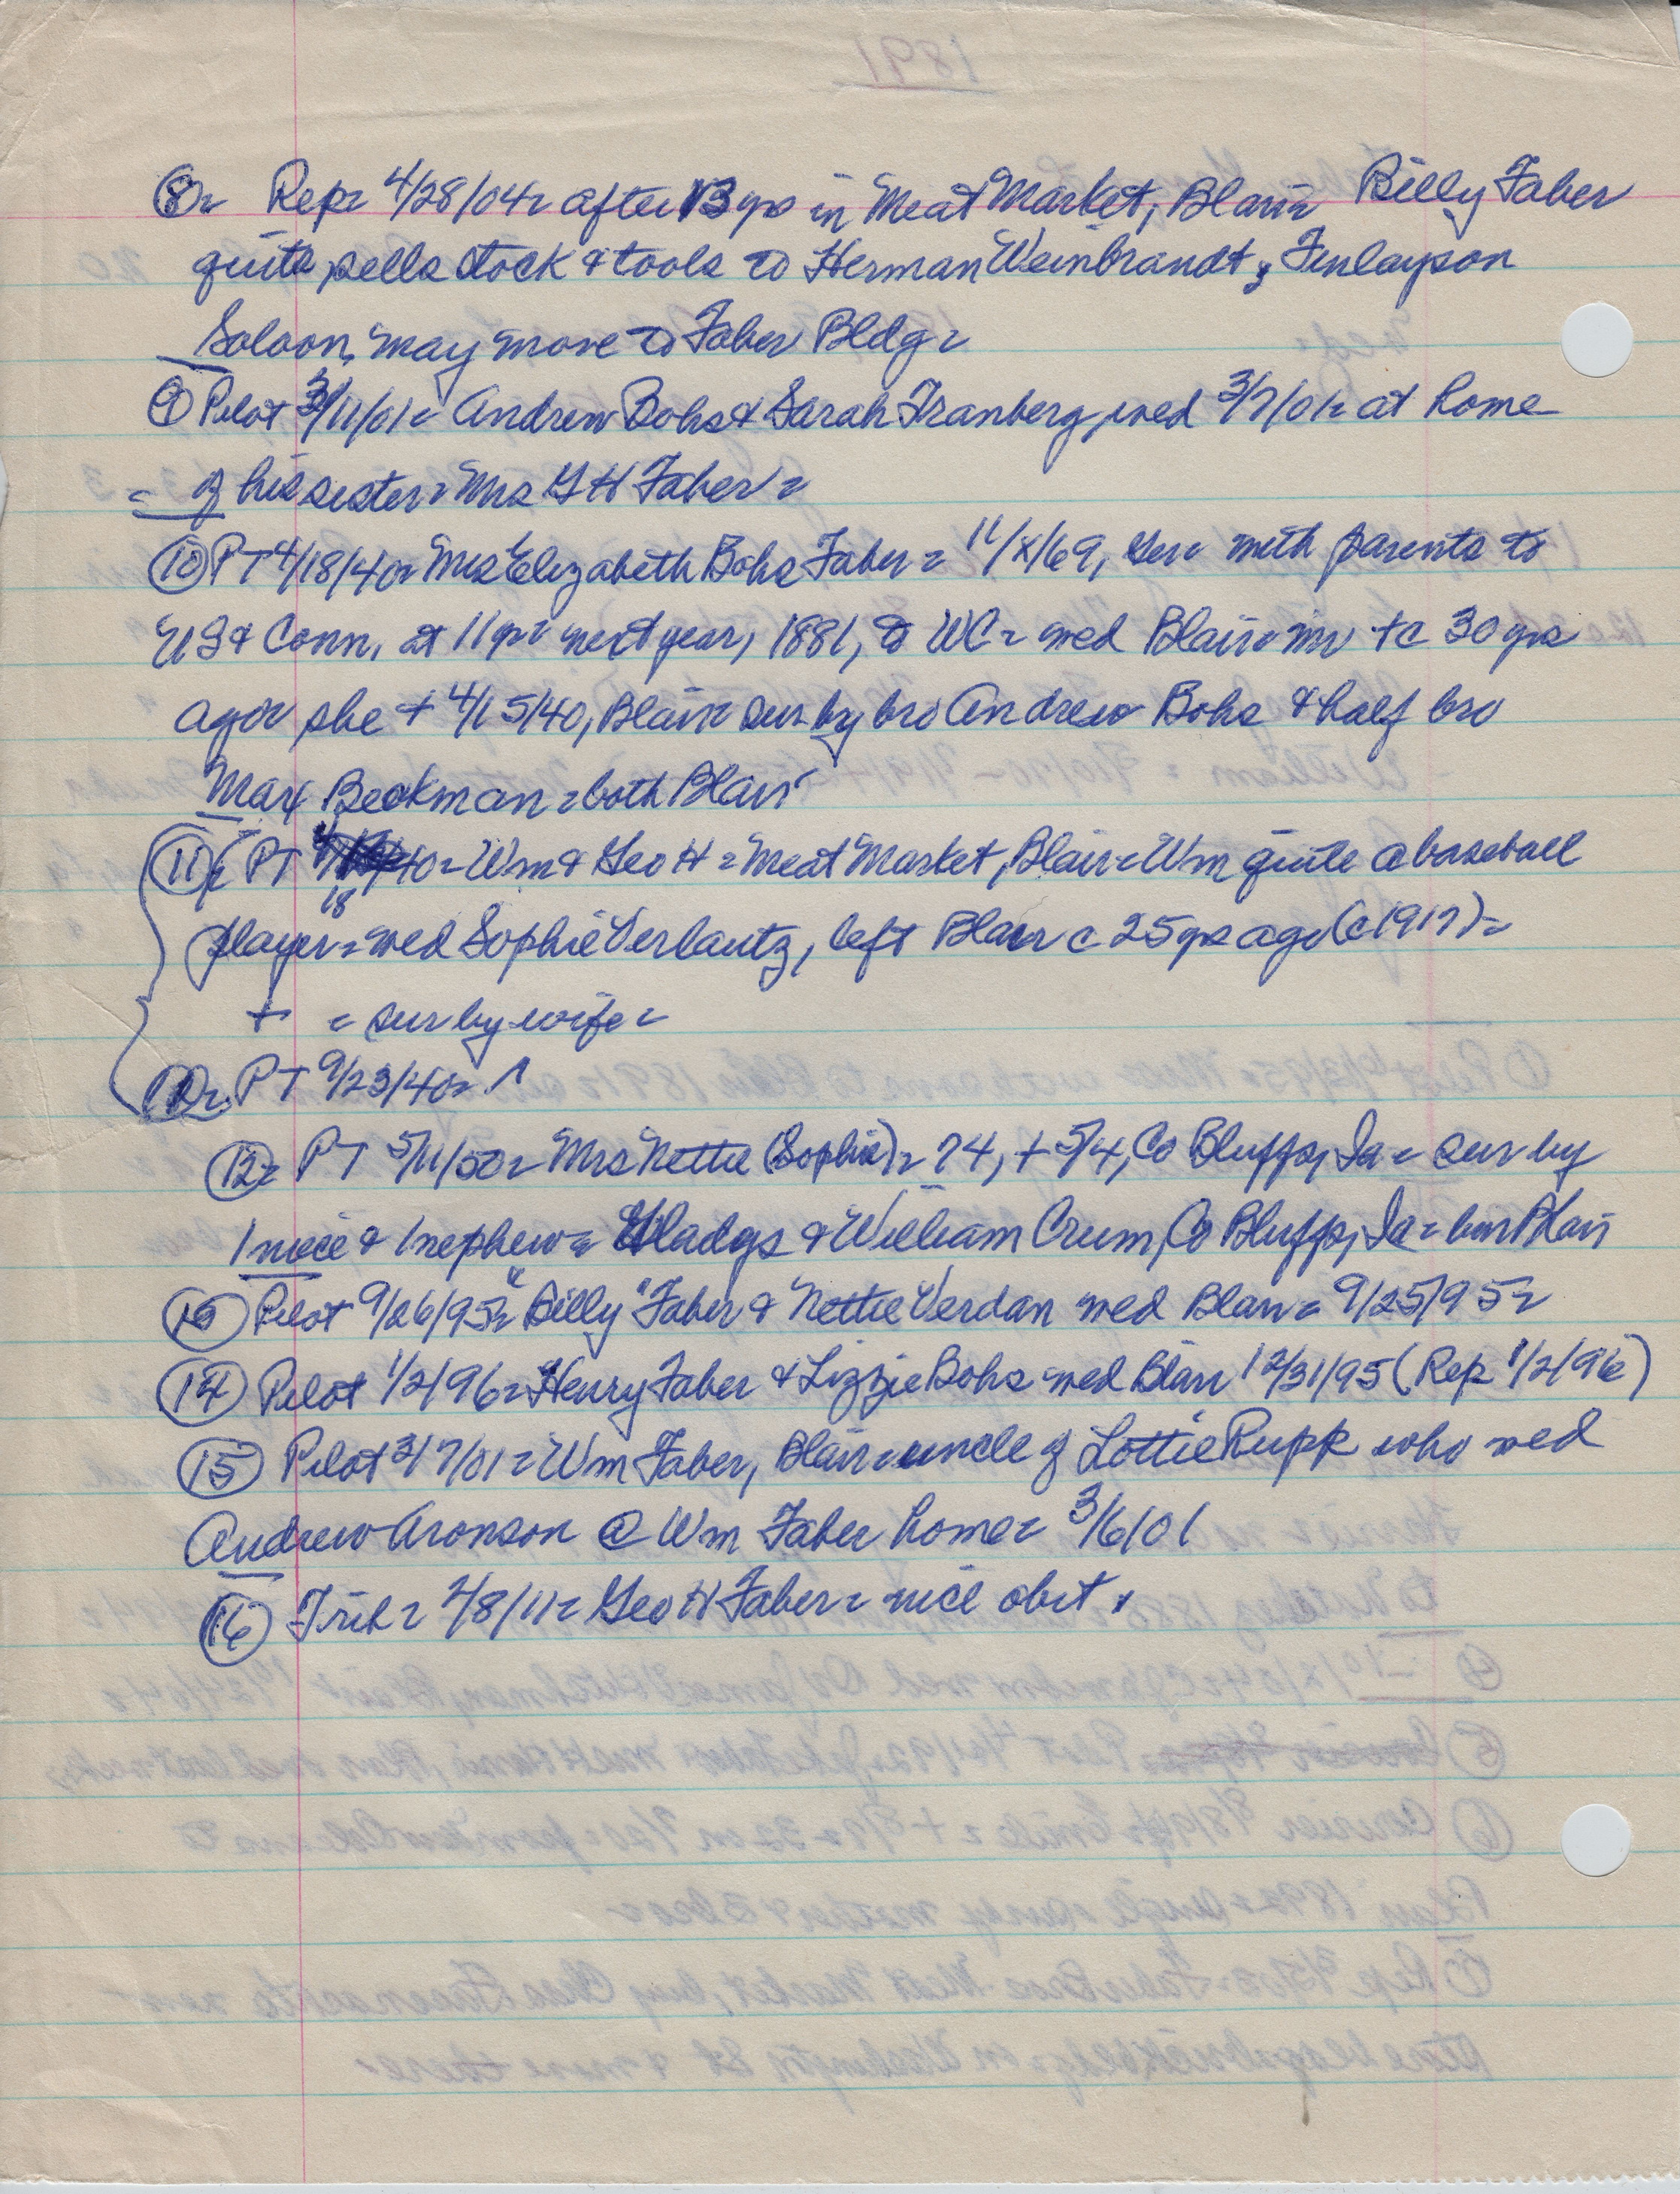 ⑧= Rep= 4/28/04= after 13 yrs in Meat Market, Blair= Billy Faber
quits, sells stock & tools to Herman Weinbrandt, Finlayson
Saloon, may move to Faber Bldg=
⑨ Pilot 3/11/01= Andrew Bohs & Sarah Tranberg, wed 3/7/01= at home
= of his sister= Mrs G H Faber=
⑩ PT 4/18/40= Mrs Elizabeth Bohs Faber= 11/x/69, Ger= with parents to
US & Conn, at 11 yr= next year, 1881, to WC= wed Blair= +c 30 yrs
ago= she + 4/15/40, Blair= sur by bro Andrew Bohs & half bro
Max Beckman= both Blair
⑪ PT 18/40= Wm & Geo H= Meat Market, Blair= Wm quite a baseball
player= wed Sophie Verlautz, left Blair c 25 yrs ago (c 1917)=
+ = sur by wife=
PT 9/23/40= ^
⑫= PT 5/11/50= Mrs Nettie (Sophie)= 74, + 5/4, Co Bluffs, Ia= sur by
1 niece & 1 nephew= Gladys & William Crum, Co Bluffs, Ia= bur Blair
Pilot 9/26/95= "Billy" Faber & Nettie Verdan wed Blair= 9/25/95=
⑭ Pilot 1/2/96= Henry Faber & Lizzie Bohs wed Blair 12/31/95 (Rep 1/2/96)
⑮ Pilot 3/7/01= Wm Faber, Blair= uncle of Lottie Rupp who wed
Andrew Aronson @ Wm Faber home= 3/6/01
⑯ Trib= 2/8/11= Geo H Faber= nice obit.